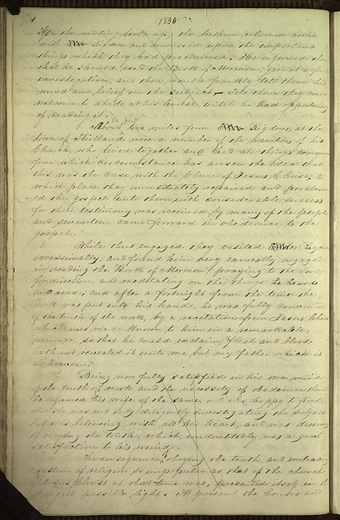 1830
After the meeting broke up, the brethren returned home
with Rigdon and conversed upon the important
things which they had proclaimed. He informed them
that he should read the Book of Mormon, give it a full
investigation, and then would frankly tell them his
mind and feelings on the subject – told them they were
welcome to abide at his house until he had opportunity
of reading it.
About two miles from Rigdon's, at the
town of Kirtland were a number of the members of his
Church, who lived together and had all things common
from which circumstance has arisen the idea that
this was the case with the Church of Jesus Christ, to
which place they immediately repaired and proclaimed
the gospel unto them with considerable success
for their testimony was received by many of the people
and seventeen came forward in obedience to the
gospel.
While thus engaged they visited Rigdon
occasionally, and found him very earnestly engaged
in reading the Book of Mormon, praying to the Lord
for direction, and meditating on the things he heard
and read; and after a fortnight from the time the
book was put into his hands, he was fully convinced
of the truth of the work, by a revelation from Jesus Christ
which was made known to him in a remarkable
manner, so that he could exclaim, "flesh and blood
hath not revealed it unto me, but my father which is
in heaven."
Being now fully satisfied in his own mind
of the truth of work and the necessity of obedience thereto
he informed his wife of the same, and was happy to find
that she was not only diligently investigating the subject
but was believing with all her heart, and was desirous
of obeying the truth, which undoubtedly was a great
satisfaction to his mind.
The consequence, obeying the truth, and embracing
a system of religion so unpopular as that of the church
of Jesus Christ at that time was, presented itself in the
strongest possible light. At present the honors and